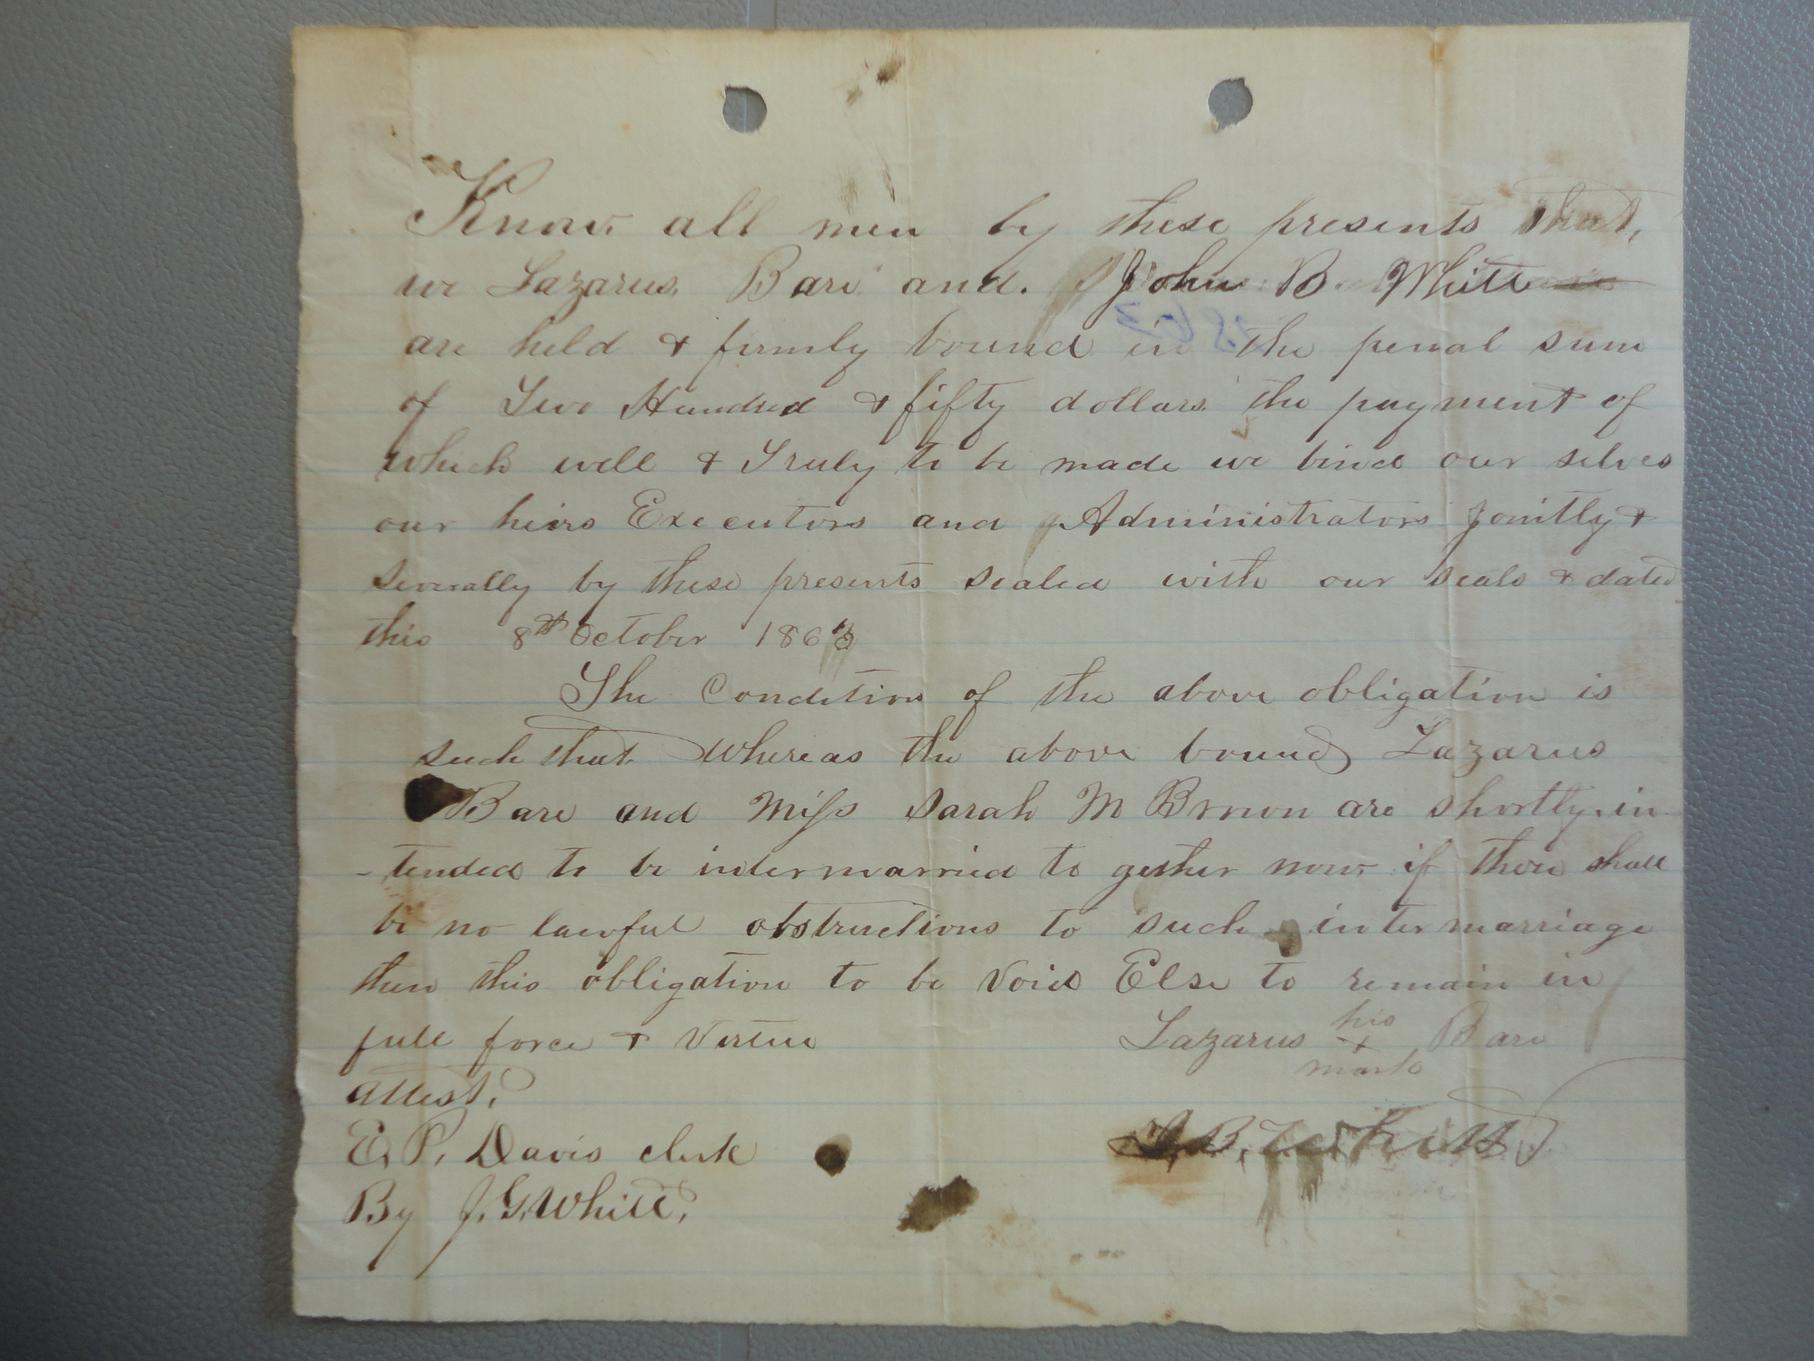 Know all men by these presents that,
we Lazarus Bare and. John B White
are held & firmly bound in the penal sum
of Two Hundred & fifty dollars the payment of
which well & Truly to be made we bind our selves
our heirs Executors and Administrators Jointly &
severally by these presents sealed with our seals & dated
this 8th October 1863
The Condition of the above obligation is
such that Whereas the above bound Lazarus
Bare and Miss Sarah M Brown are shortly in
-tended to be intermarried to gether now if there shall
be no lawful obstructions to such intermarriage
then this obligation to be Void Else to remain in
full force & Virtue
Lazarus his x mark Bare
attest,
J. B. White
E. P. Davis clerk
By J. G. White,